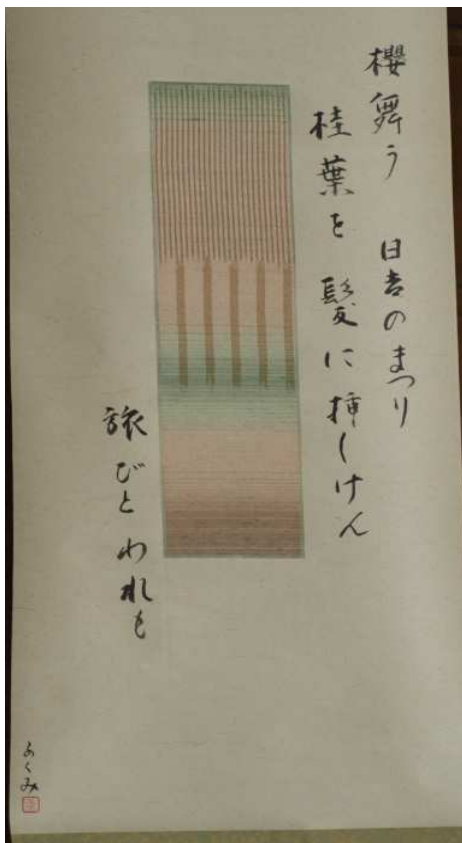 櫻舞う 日吉のまつり
桂葉を 髪に挿しけん
旅びとわれも
ふくみ